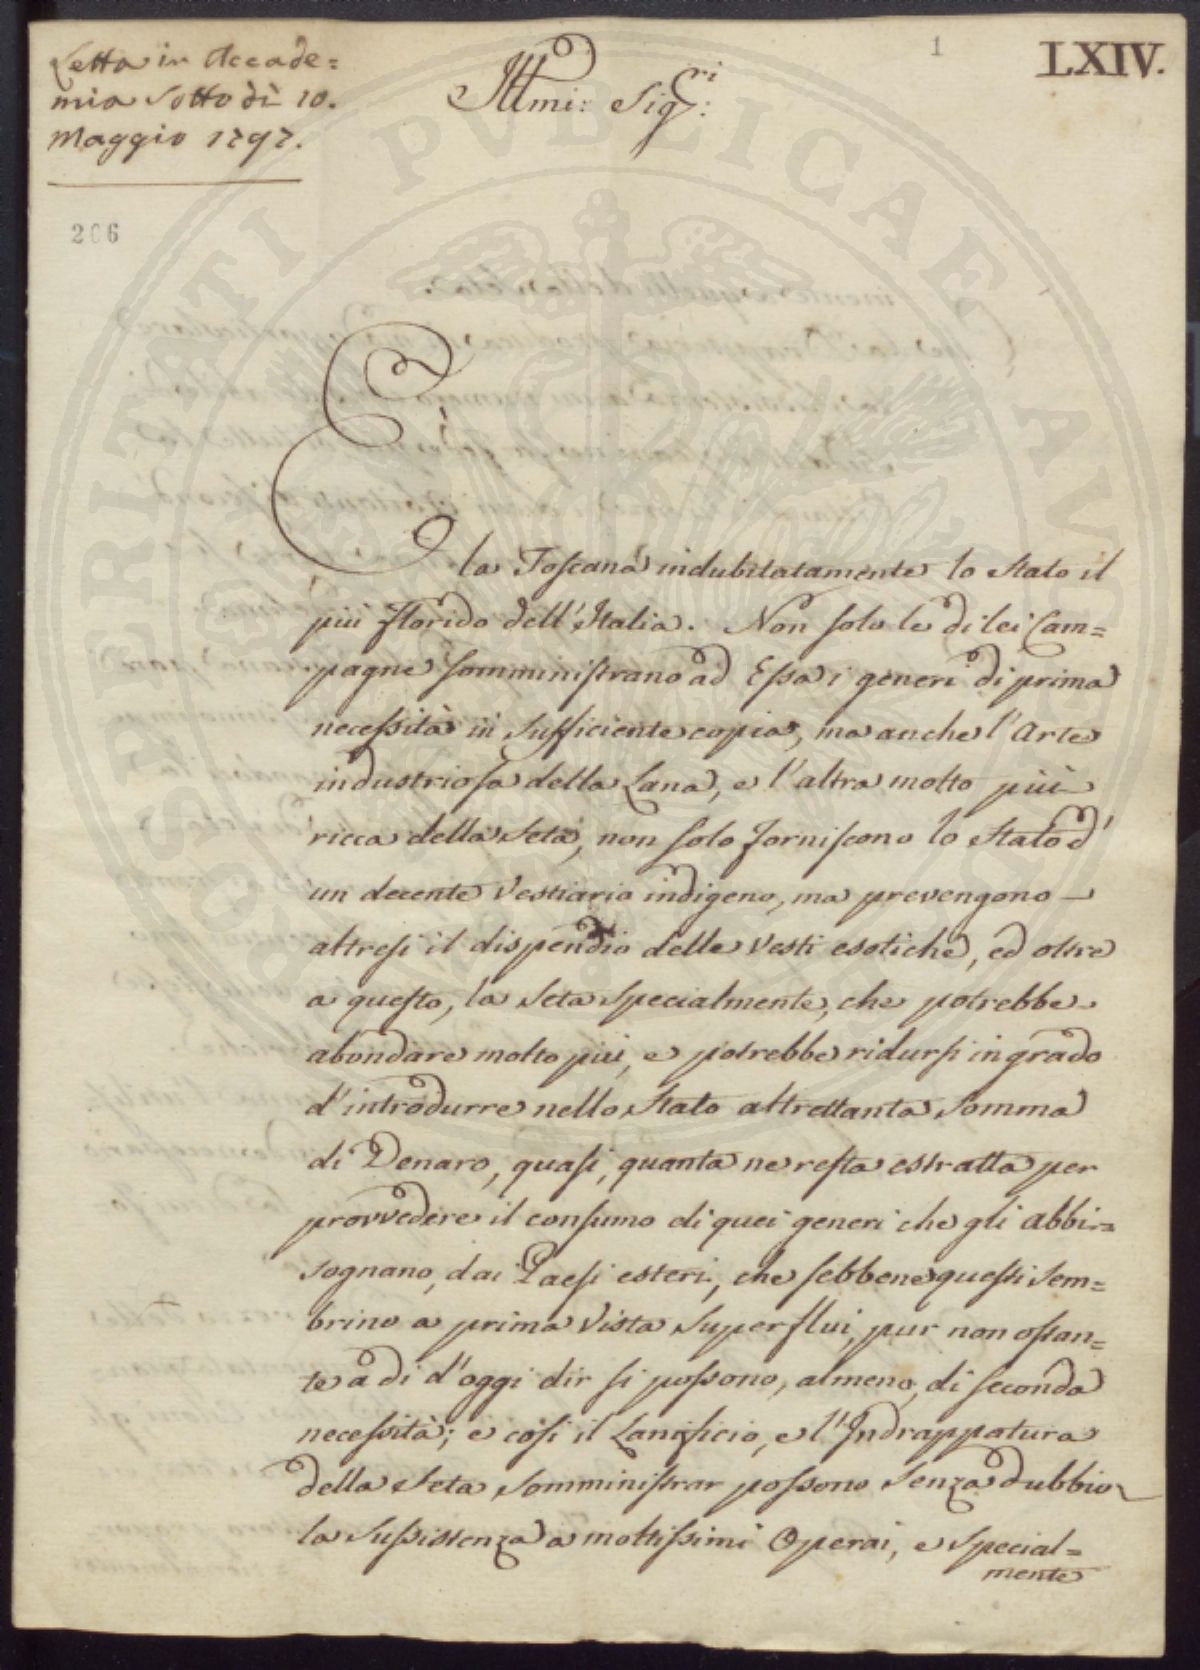 Letta in Accade=
mia sotto dì 10.
Maggio 1797.
1
LXIV.
Illmi: Sigri:
206
PROSPERITATI PUBLICAE AUGENDAE
È la Toscana indubitatamente lo Stato il
più florido dell'Italia. Non solo le di lei Cam=
pagne somministrano ad Essa i generi di prima
necessità in sufficiente copia, ma anche l'Arte
industriosa della Lana, e l'altra molto più
ricca della Seta, non solo forniscono lo Stato d'
un decente Vestiario indigeno, ma prevengono
altresi il dispendio delle Vesti esotiche, ed oltre
a questo, la Seta specialmente, che potrebbe
abondare molto più, e potrebbe ridursi in grado
d'introdurre nello Stato altrettanta Somma
di Denaro, quasi, quanta ne resta estratta per
provvedere il consumo di quei generi che gli abbi=
sognano, dai Paesi esteri, che sebbene questi sem=
brino a prima Vista Superflui, pur non ostan=
te a di d'oggi dir si possono, almeno, di seconda
necessità; e così il Lanificio, e l'Indrappatura
della Seta somministrar possono senza dubbio
la sussistenza a moltissimi Operai, e special=
mente